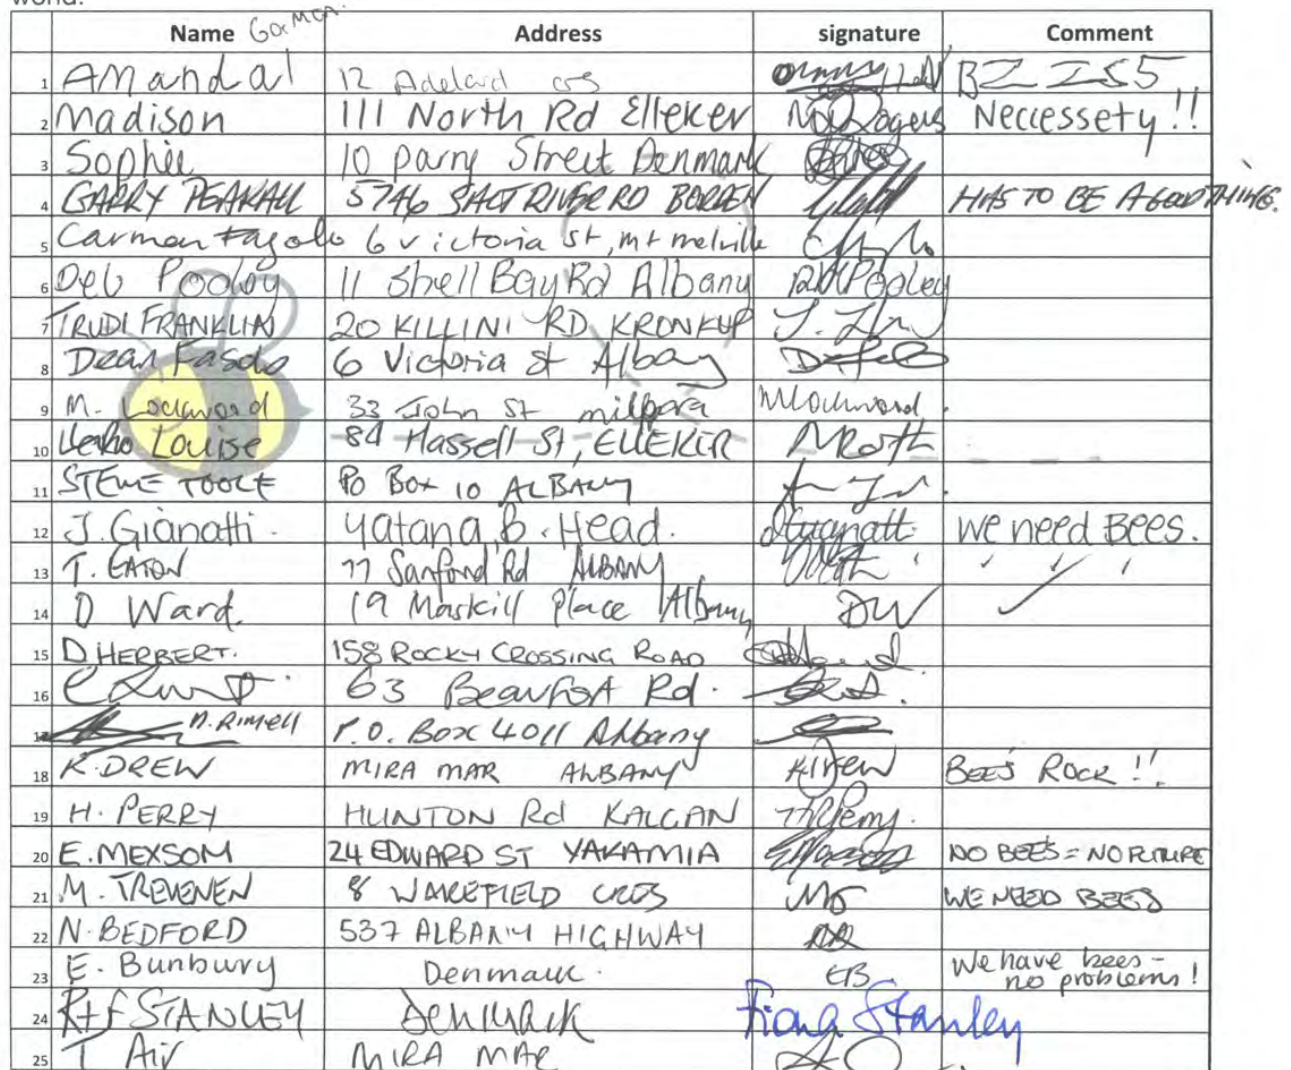 world.
Name Gorman. Address signature Comment
1 Amandal 12 Adelaid crs BZZZS5
2 Madison 111 North Rd Elleker Neccessety!!
3 Sophie 10 parry Street Denmark
4 GARRY PEAKALL 5746 SALT RIVER RD BORDEN HAS TO BE A GOOD THING.
5 Carmen Fasolo 6 victoria st, mt melville
6 Deb Pooley 11 Shell Bay Rd Albany DM Pooley
7 TRUDI FRANKLIN 20 KILLINI RD KRONKUP
8 Dean Fasolo 6 Victoria st Albany
9 M. Lockwood 33 John St milpara MLockwood.
10 Louise 84 Hassell St, ELLEKER
11 STEVE TOOLE PO Box 10 ALBANY
12 J. Gianatti. Yatana, B. Head. we need Bees.
13 T. EATON 77 Sanford Rd ALBANY
14 D Ward. 19 Maskill Place Albany DW
15 D. HERBERT. 158 ROCKY CROSSING ROAD
16 63 Beaufort Rd.
17 D. Rimell P.O. Box 4011 Albany
18 K. DREW MIRA MAR ALBANY KDrew BEES ROCK!!.
19 H. PERRY HUNTON Rd KALGAN HPerry.
20 E. MEXSOM 24 EDWARD ST YAKAMIA NO BEES = NO FUTURE
21 M. TREVENEN 8 WAKEFIELD CRES WE NEED BEES
22 N. BEDFORD 537 ALBANY HIGHWAY
23 E. Bunbury Denmark. EB We have bees - no problems!
24 R+F STANLEY Denmark Fiona Stanley
25 T Air MIRA MAR